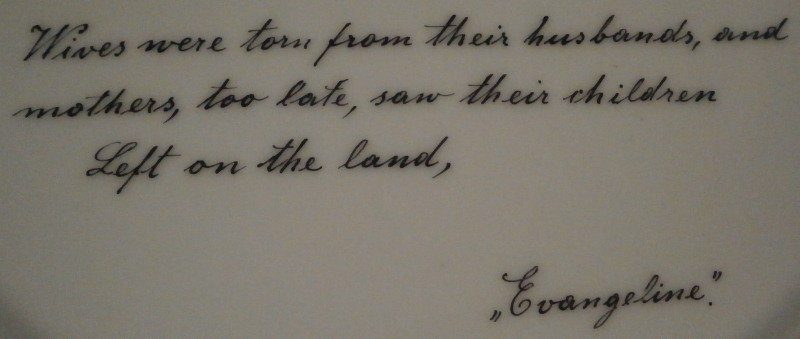 Wives were torn from their husbands, and
mothers, too late, saw their children
Left on the land,
„Evangeline".